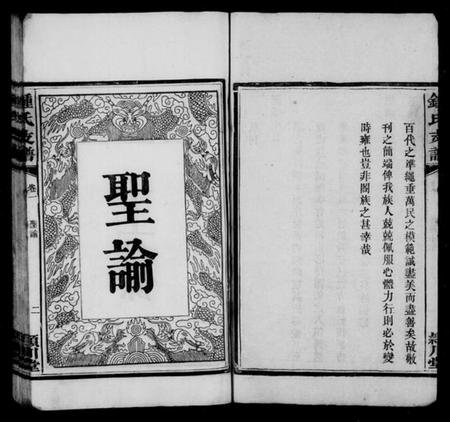 鍾氏支譜
百代之準繩垂萬民之模範誠盡美而盡善矣故敬
刊之簡端俾我族人兢兢佩服心體力行則必於變
時雍也豈非閤族之甚幸哉
潁川堂
聖諭
鍾氏支譜
卷一
聖諭
二
潁川堂